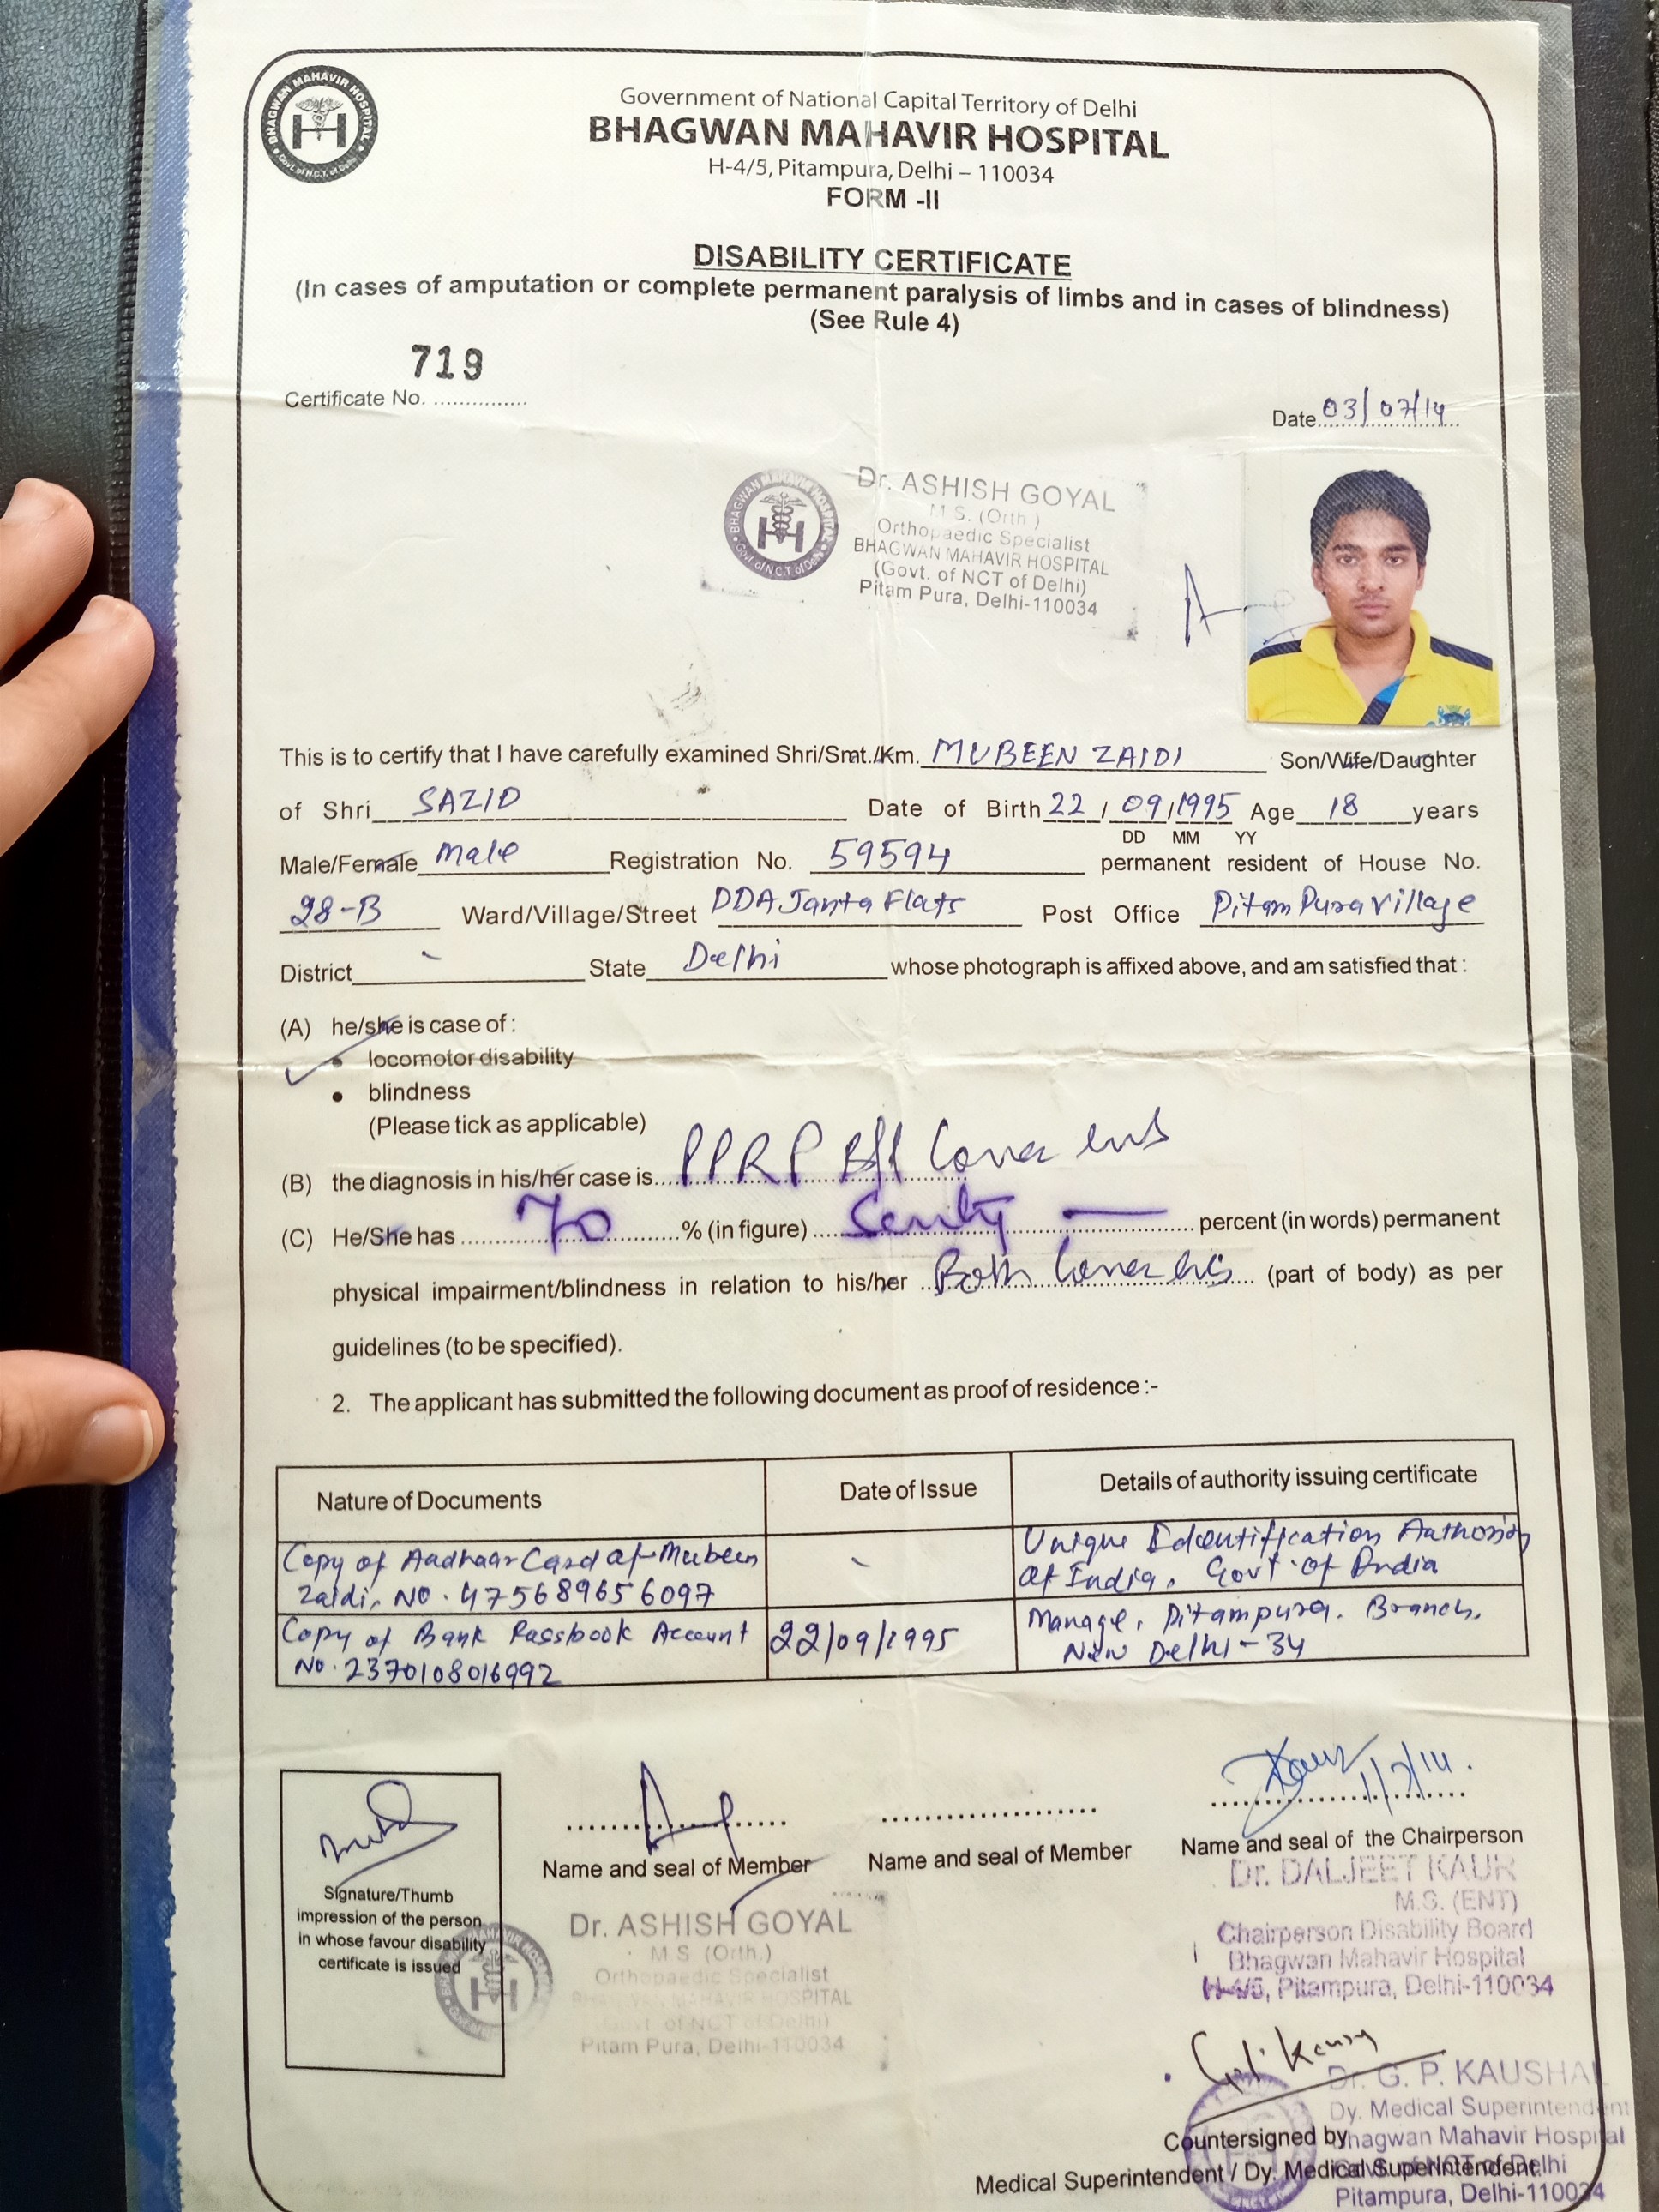 BHAGWAN MAHAVIR HOSPITAL
Govt. of N.C.T. of Delhi
Government of National Capital Territory of Delhi
BHAGWAN MAHAVIR HOSPITAL
H-4/5, Pitampura, Delhi – 110034
FORM -II
DISABILITY CERTIFICATE
(In cases of amputation or complete permanent paralysis of limbs and in cases of blindness)
(See Rule 4)
719
Certificate No. ...............
Date 03/07/14
BHAGWAN MAHAVIR HOSPITAL
Govt. of N.C.T. of Delhi
Dr. ASHISH GOYAL
M S. (Orth.)
Orthopaedic Specialist
BHAGWAN MAHAVIR HOSPITAL
(Govt. of NCT of Delhi)
Pitam Pura, Delhi-110034
This is to certify that I have carefully examined Shri/Smt./Km. MUBEEN ZAIDI Son/Wife/Daughter
of Shri SAZID Date of Birth 22 / 09 / 1995 Age 18 years
DD MM YY
Male/Female Male Registration No. 59594 permanent resident of House No.
28-B Ward/Village/Street DDA Janta Flats Post Office Pitam Pura Village
District - State Delhi whose photograph is affixed above, and am satisfied that :
(A) he/she is case of :
• locomotor disability
• blindness
(Please tick as applicable)
(B) the diagnosis in his/her case is PPRP
(C) He/She has 70 % (in figure) percent (in words) permanent
physical impairment/blindness in relation to his/her Both (part of body) as per
guidelines (to be specified).
2. The applicant has submitted the following document as proof of residence :-
Nature of Documents Date of Issue Details of authority issuing certificate
Copy of Aadhaar Card of Mubeen Zaidi, NO. 475689656097 - Unique Identification Authority of India, Govt of India
Copy of Bank Passbook Account NO. 2370108016992 22/09/1995 Manage, Pitampura. Branch, New Delhi - 34
1/7/14.
Name and seal of Member
Name and seal of Member
Name and seal of the Chairperson
Signature/Thumb
impression of the person
in whose favour disability
certificate is issued
Dr. ASHISH GOYAL
M S (Orth.)
Orthopaedic Specialist
BHAGWAN MAHAVIR HOSPITAL
Govt. of NCT of Delhi)
Pitam Pura, Delhi-110034
Dr. DALJEET KAUR
M.S. (ENT)
Chairperson Disability Board
Bhagwan Mahavir Hospital
H-4/5, Pitampura, Delhi-110034
Dr. G. P. KAUSHAL
Dy. Medical Superintendent
Bhagwan Mahavir Hospital
Govt. of NCT of Delhi
Pitampura, Delhi-110034
Countersigned by
Medical Superintendent / Dy. Medical Superintendent